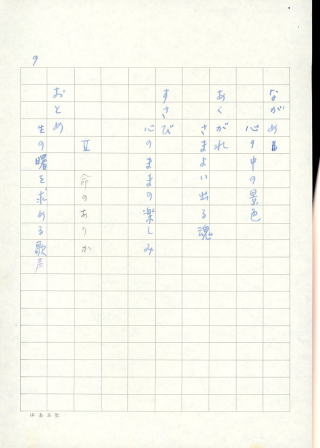 9
ながめ
心の中の景色
あくがれ
さまよい出る魂
すさび
心のままの楽しみ
Ⅱ 命のありか
おとめ
生の曙を求める歌声